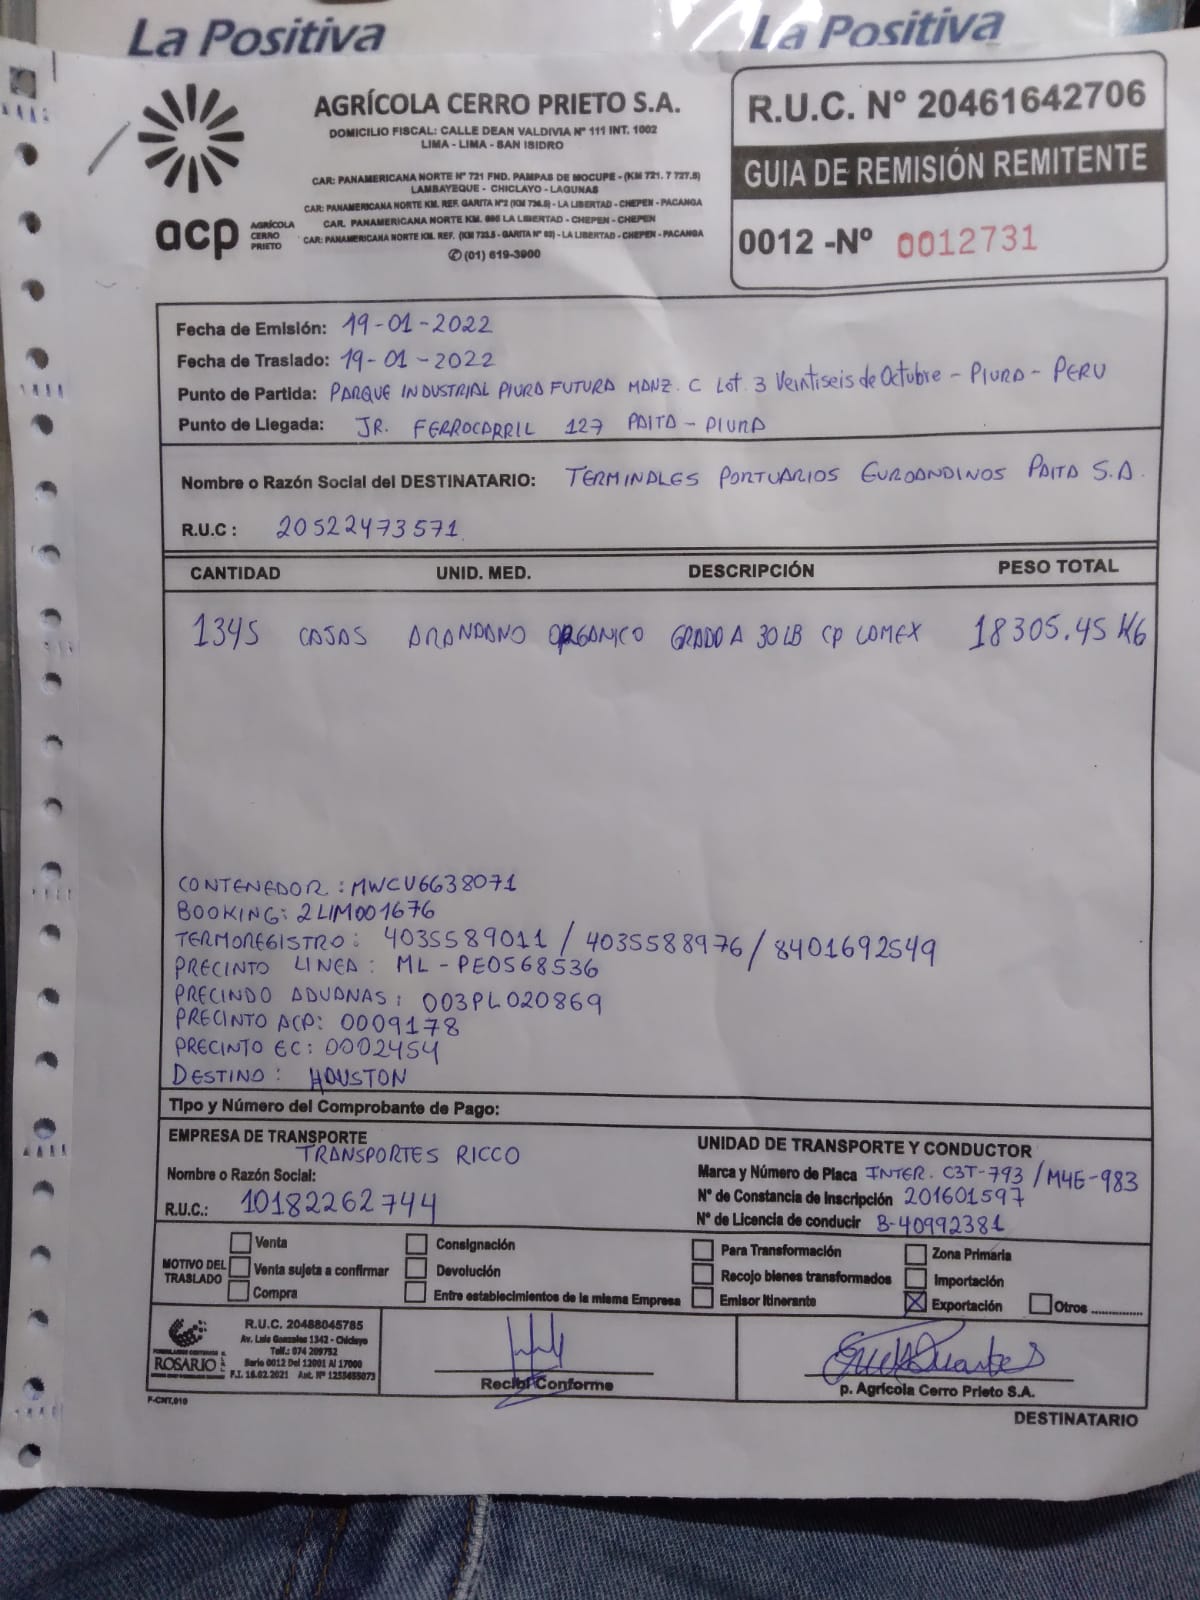 La Positiva La Positiva
AGRÍCOLA CERRO PRIETO S.A.
DOMICILIO FISCAL: CALLE DEAN VALDIVIA Nº 111 INT. 1002
LIMA - LIMA - SAN ISIDRO
CAR: PANAMERICANA NORTE Nº 721 FND. PAMPAS DE MOCUPE - (KM 721. 7 727.5)
LAMBAYEQUE - CHICLAYO - LAGUNAS
CAR: PANAMERICANA NORTE KM. REF. GARITA Nº2 (KM 736.5) - LA LIBERTAD - CHEPEN - PACANGA
CAR. PANAMERICANA NORTE KM. 695 LA LIBERTAD - CHEPEN - CHEPEN
CAR: PANAMERICANA NORTE KM. REF. (KM 733.5 - GARITA Nº 03) - LA LIBERTAD - CHEPEN - PACANGA
✆(01) 619-3900
acp AGRÍCOLA
CERRO
PRIETO
R.U.C. Nº 20461642706
GUIA DE REMISIÓN REMITENTE
0012 -Nº 0012731
Fecha de Emisión: 19-01-2022
Fecha de Traslado: 19-01-2022
Punto de Partida: PARQUE INDUSTRIAL PIURA FUTURA MANZ. C LOT. 3 Veintiseis de Octubre - PIURA - PERU
Punto de Llegada: JR. FERROCARRIL 127 PAITA - PIURA
Nombre o Razón Social del DESTINATARIO: TERMINALES PORTUARIOS EUROANDINOS PAITA S.A.
R.U.C : 20522473571
CANTIDAD UNID. MED. DESCRIPCIÓN PESO TOTAL
1345 CAJAS ARANDANO ORGANICO GRADO A 30 LB CP COMEX 18305.45 KG
CONTENEDOR : MWCU6638071
BOOKING: 2LIM001676
TERMOREGISTRO: 4035589011 / 4035588976 / 8401692549
PRECINTO LINEA : ML - PE0568536
PRECINDO ADUANAS : 003PL020869
PRECINTO ACP: 0009178
PRECINTO EC: 0002454
DESTINO : HOUSTON
Tipo y Número del Comprobante de Pago:
EMPRESA DE TRANSPORTE
TRANSPORTES RICCO
Nombre o Razón Social:
R.U.C.: 10182262744
UNIDAD DE TRANSPORTE Y CONDUCTOR
Marca y Número de Placa INTER. C3T-793 / M4E-983
Nº de Constancia de Inscripción 201601597
Nº de Licencia de conducir B-40992381
MOTIVO DEL
TRASLADO
Venta
Venta sujeta a confirmar
Compra
Consignación
Devolución
Entre establecimientos de la misma Empresa
Para Transformación
Recojo bienes transformados
Emisor Itinerante
Zona Primaria
Importación
Exportación
Otros .............
ROSARIO
R.U.C. 20488045785
Av. Luis Gonzales 1342 - Chiclayo
Telf.: 074 209752
Serie 0012 Del 12001 Al 17000
F.I. 16.02.2021 Aut. Nº 1255455073
Recibí Conforme
p. Agrícola Cerro Prieto S.A.
F-CNT.010
DESTINATARIO